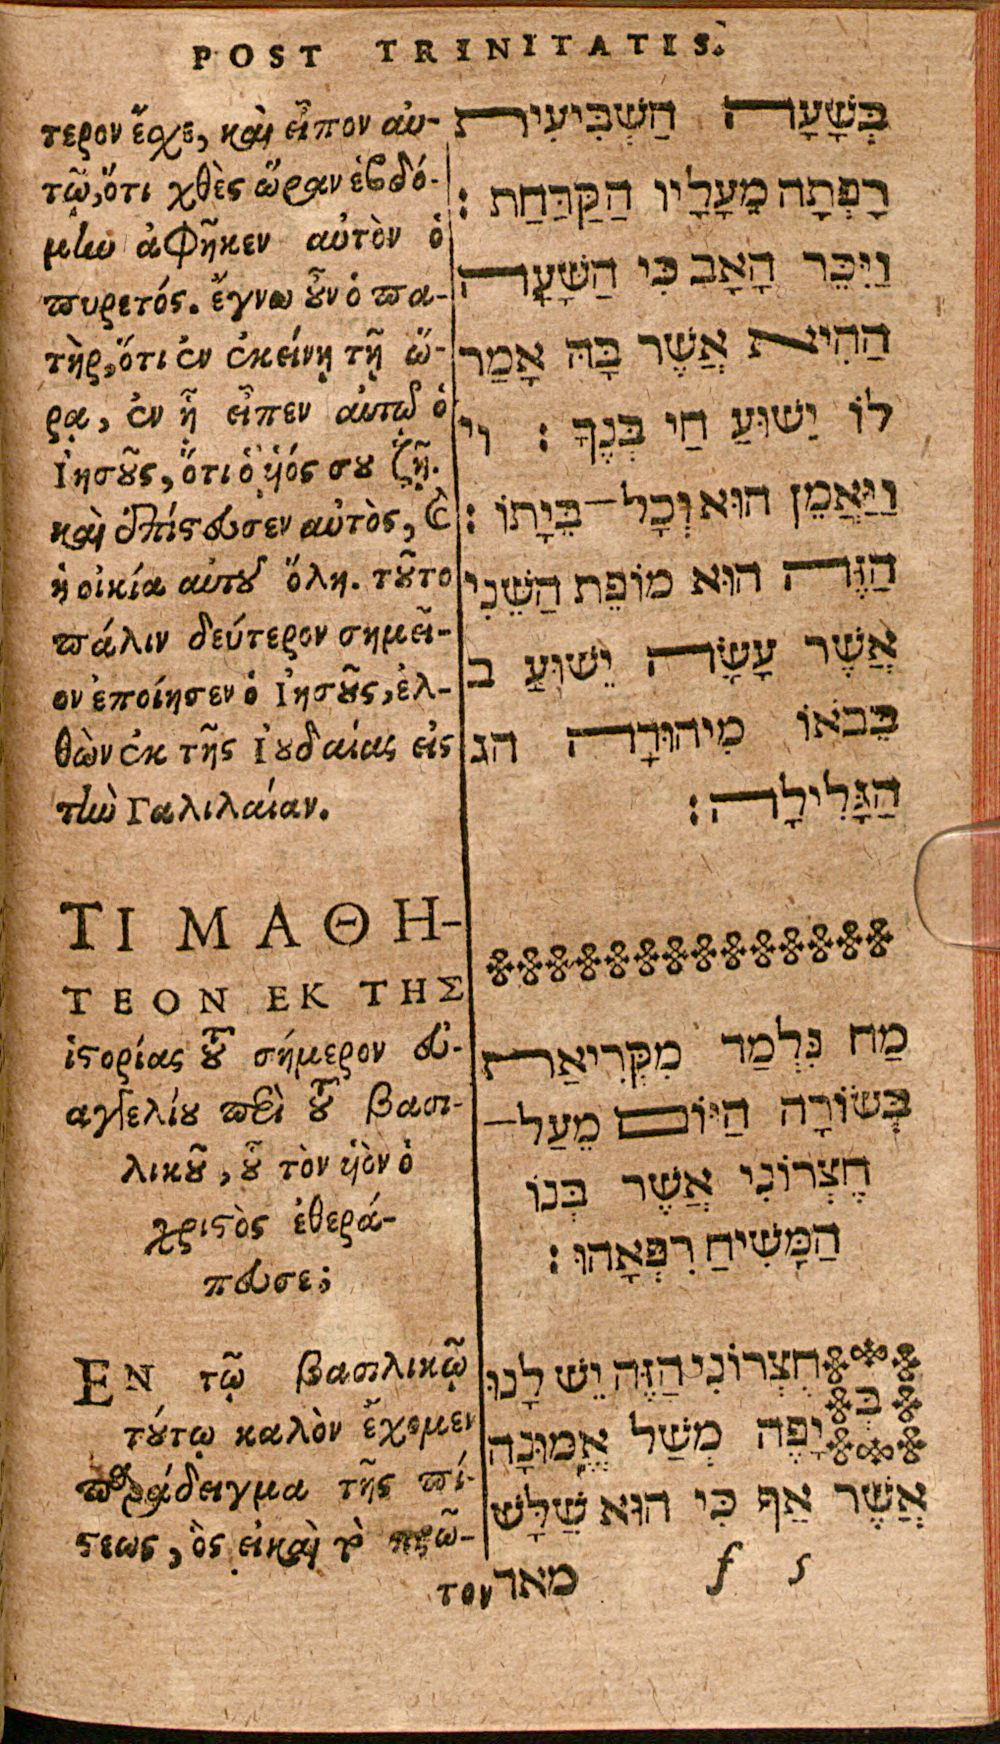 POST TRINITATIS.
τερον ἔσχε, καὶ εἶπον αὐ-
τῷ, ὅτι χθὲς ὥραν ἑβδό-
μην ἀφῆκεν αὐτὸν ὁ
πυρετός. ἔγνω οὖν ὁ πα-
τὴρ, ὅτι ἐν ἐκείνῃ τῇ ὥ-
ρᾳ, ἐν ᾗ εἶπεν αὐτῷ ὁ
Ἰησοῦς, ὅτι ὁ ὑιός σου ζῇ.
καὶ ἐπίστευσεν αὐτὸς, καὶ
ἡ οἰκία αὐτοῦ ὅλη. τοῦτο
πάλιν δεύτερον σημεῖ-
ον ἐποίησεν ὁ Ἰησοῦς, ἐλ-
θὼν ἐκ τῆς Ἰουδαίας εἰς
τὴν Γαλιλαίαν.
ΤΙ ΜΑΘΗ-
ΤΕΟΝ ΕΚ ΤΗΣ
ἱστορίας τοῦ σήμερον εὐ-
αγγελίου περὶ τοῦ βασι-
λικοῦ, οὗ τὸν ὑιὸν ὁ
χριστὸς ἐθερά-
πευσε;
ΕΝ τῷ βασιλικῷ
τούτῳ καλὸν ἔχομεν
παράδειγμα τῆς πί-
στεως, ὃς εἰ καὶ τὸ πρῶ-
τον
בְּשָׁעָה הַשְׁבִּיעִית
רָפְתָה מֵעָלָיו הַקַּדַּחַת :
וַיִּכֵּר הָאָב כִּי הַשָּׁעָה
הַהִיא אֲשֶׁר בָּהּ אָמַר
לוֹ יֵשׁוּעַ חַי בְּנֶךָ : וי
וַיַּאֲמֵן הוּא וְכָל־בֵּיתוֹ :
הַזֶּה הוּא מוֹפֵת הַשֵּׁנִי
אֲשֶׁר עָשָׂה יֵשׁוּעַ ב
בְּבֹאוֹ מִיהוּדָה הג
הַגָּלִילָה :
מַה נִּלְמַד מִקְּרִיאַת
בְּשׂוֹרָה הַיּוֹם מֵעַל־
חֶצְרוֹנִי אֲשֶׁר בְּנוֹ
הַמָּשִׁיחַ רִפְּאָהוּ :
בְּ חֶצְרוֹנִי הַזֶּה יֵשׁ לָנוּ
יָפֶה מְשַׁל אֱמוּנָה
אֲשֶׁר אַף כִּי הוּא שָׁלָשׁ
מאד
f 5